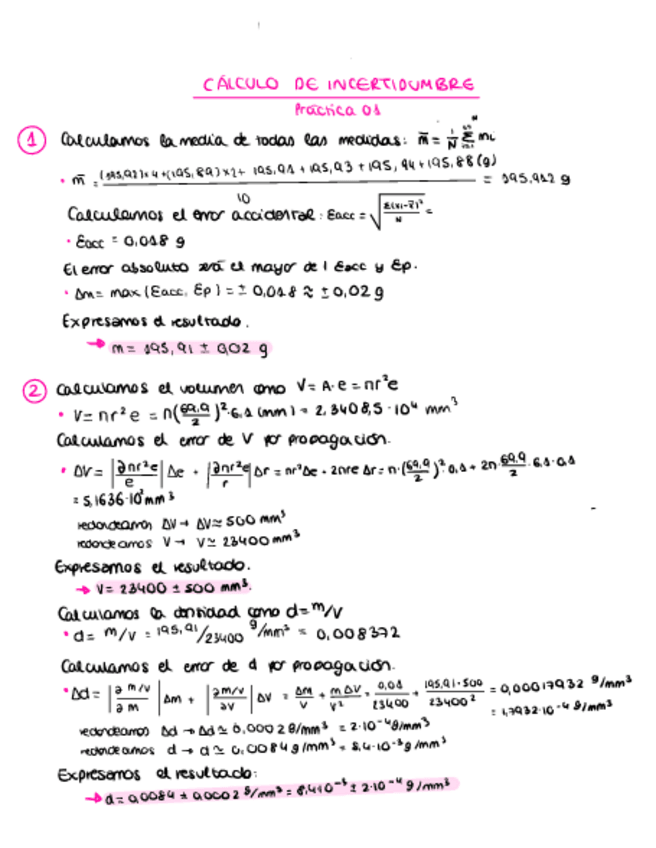 CÁLCULO DE INCERTIDUMBRE
Práctica 01
1 Calculamos la media de todas las medidas: m̄ = 1/N Σ mi
· m̄ = (195,92)x4+(195,89)x2+ 195,91 + 195,93 + 195,94 + 195,88 (g) / 10 = 195,912 g
Calculamos el error accidental: Eacc = √(Σ(xi-x̄)²/N) =
· Eacc = 0,018 g
El error absoluto será el mayor de | Eacc y Ep.
· Δm = max (Eacc, Ep) = ± 0,018 ≈ ± 0,02 g
Expresamos el resultado.
→ m = 195,91 ± 0,02 g
2 Calculamos el volumen como V = A·e = πr²e
· V = πr²e = π(69,9/2)²·6,1 (mm) = 2,3408,5·10⁴ mm³
Calculamos el error de V por propagación.
· ΔV = |∂πr²e/e| Δe + |∂πr²e/r| Δr = πr²Δe + 2πre Δr = π·(69,9/2)²·0,1 + 2π·69,9/2·6,1·0,1
= 5,1636·10² mm³
redondeamos ΔV → ΔV ≃ 500 mm³
redondeamos V → V ≃ 23400 mm³
Expresamos el resultado.
→ V = 23400 ± 500 mm³.
Calculamos la densidad como d = m/V
· d = m/v = 195,91/23400 g/mm³ = 0,008372
Calculamos el error de d por propagación.
· Δd = |∂ m/v / ∂ m| Δm + |∂ m/v / ∂V| ΔV = Δm/V + m ΔV/V² = 0,01/23400 + 195,91·500/23400² = 0,00017932 g/mm³
= 1,7932·10⁻⁴ g/mm³
redondeamos Δd → Δd ≃ 0,0002 g/mm³ = 2·10⁻⁴ g/mm³
redondeamos d → d ≃ 0,0084 g/mm³ = 8,4·10⁻³ g/mm³
Expresamos el resultado:
→ d = 0,0084 ± 0,0002 g/mm³ = 8,4·10⁻³ ± 2·10⁻⁴ g/mm³